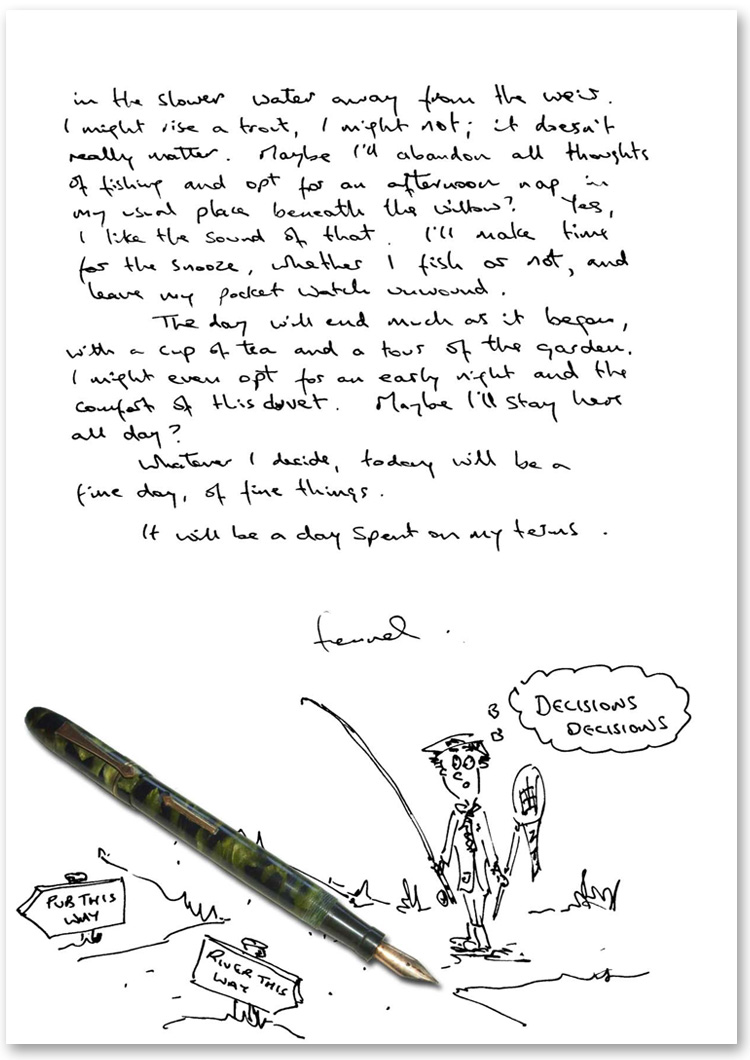 in the slower water away from the weir.
I might rise a trout, I might not; it doesn't
really matter. Maybe I'll abandon all thoughts
of fishing and opt for an afternoon nap in
my usual place beneath the willow? Yes,
I like the sound of that. I'll make time
for the snooze, whether I fish or not, and
leave my pocket watch unwound.
The day will end much as it began,
with a cup of tea and a tour of the garden.
I might even opt for an early night and the
comfort of this duvet. Maybe I'll stay here
all day?
Whatever I decide, today will be a
fine day, of fine things.
It will be a day spent on my terms.
Fennel.
DECISIONS
DECISIONS
PUB THIS
WAY
RIVER THIS
WAY